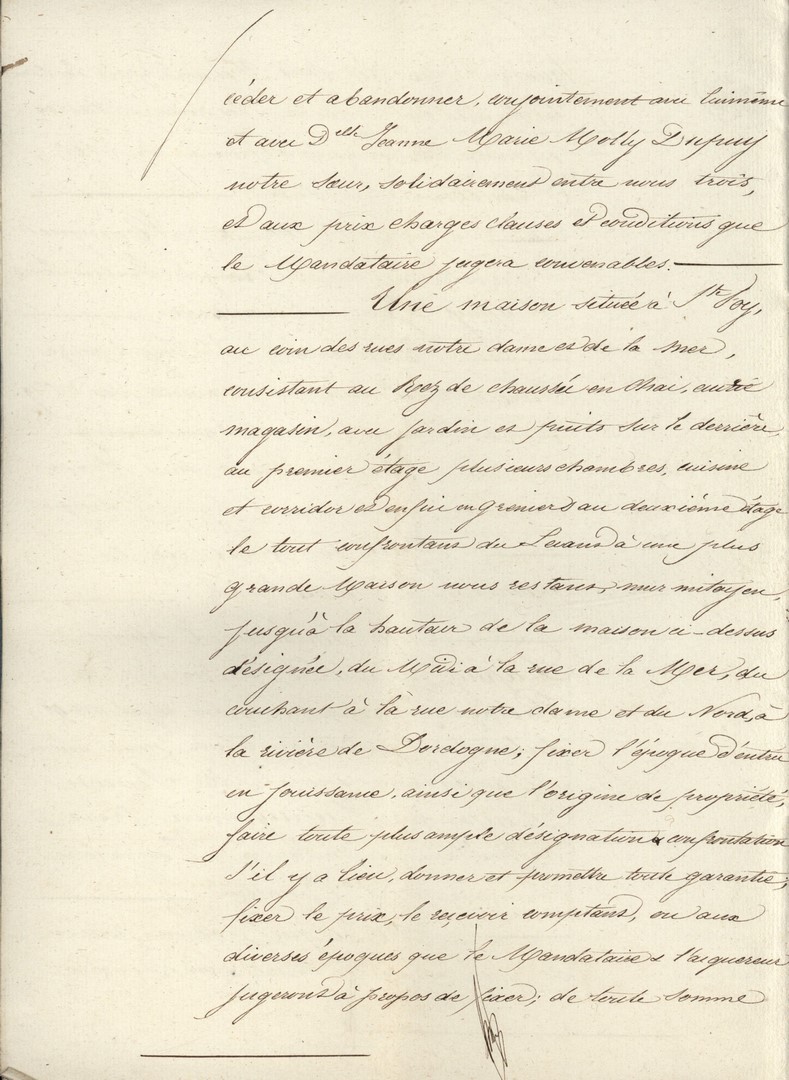 céder et abandonner, conjointement avec lui même
et avec Delle Jeanne Marie Molly Dupuy
notre sœur, solidairement entre nous trois,
et aux prix charges clauses et conditions que
le Mandataire jugera convenables.
Une maison située à Ste Foy,
au coin des rues notre dame et de la Mer,
consistant au Rez de chaussée en Chai, cuvié
magasin, avec jardin et puits sur le derrière,
au premier étage plusieurs chambres, cuisine
et corridor et enfin en Greniers au deuxième étage
le tout confrontant du Levant à une plus
grande Maison nous restant, mur mitoyen,
jusqu'à la hauteur de la maison ci-dessus
désignée, du Midi à la rue de la Mer, du
couchant à la rue notre dame et du Nord, à
la rivière de Dordogne; fixer l'époque d'entrée
en jouissance, ainsi que l'origine de propriété,
faire toute plus ample désignation & confrontation
s'il y a lieu, donner et promettre toute garantie;
fixer le prix, le reçevoir comptant, ou aux
diverses époques que le Mandataire & l'acquereur
jugeront à propos de fixer; de toute somme